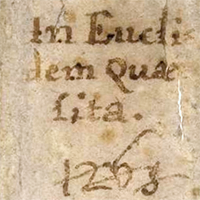 In Eucli
dem Quæ
sita.
1263